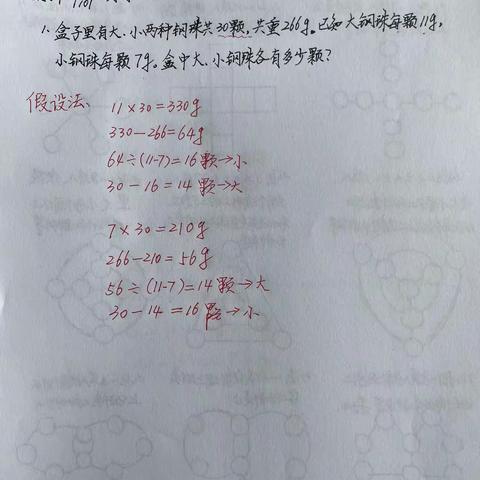 1. 盒子里有大、小两种钢珠共30颗,共重266g。已知大钢珠每颗11g,
小钢珠每颗7g。盒中大、小钢珠各有多少颗?
假设法、
11×30=330g
330-266=64g
64÷(11-7)=16颗→小
30-16=14颗→大
7×30=210g
266-210=56g
56÷(11-7)=14颗→大
30-14=16颗→小